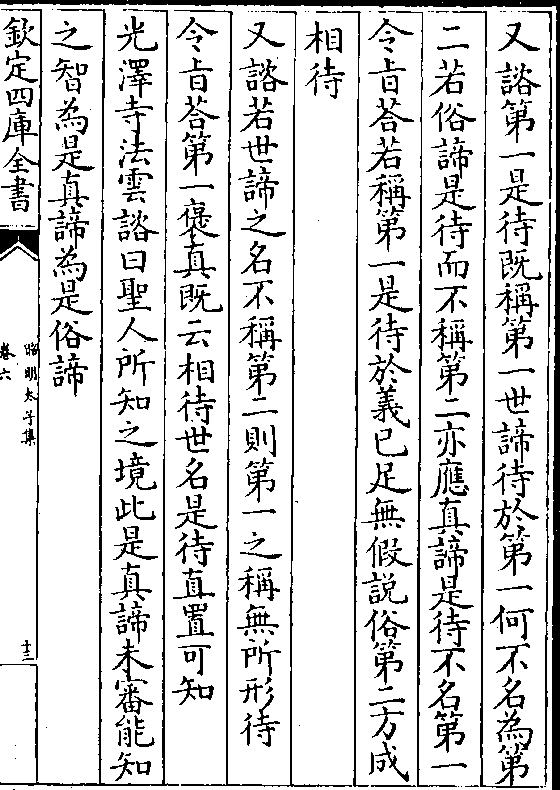 又諮第一是待既稱第一世諦待於第一何不名為第
二若俗諦是待而不稱第二亦應真諦是待不名第一
令㫖荅若稱第一是待於義已足無假說俗第二方成
相待
又諮若世諦之名不稱第二則第一之稱無所形待
令㫖荅第一襃真既云相待世名是待直置可知
光澤寺法雲諮曰聖人所知之境此是真諦未審能知
之智為是真諦為是俗諦
欽定四庫全書
昭明太子集
卷六
十三